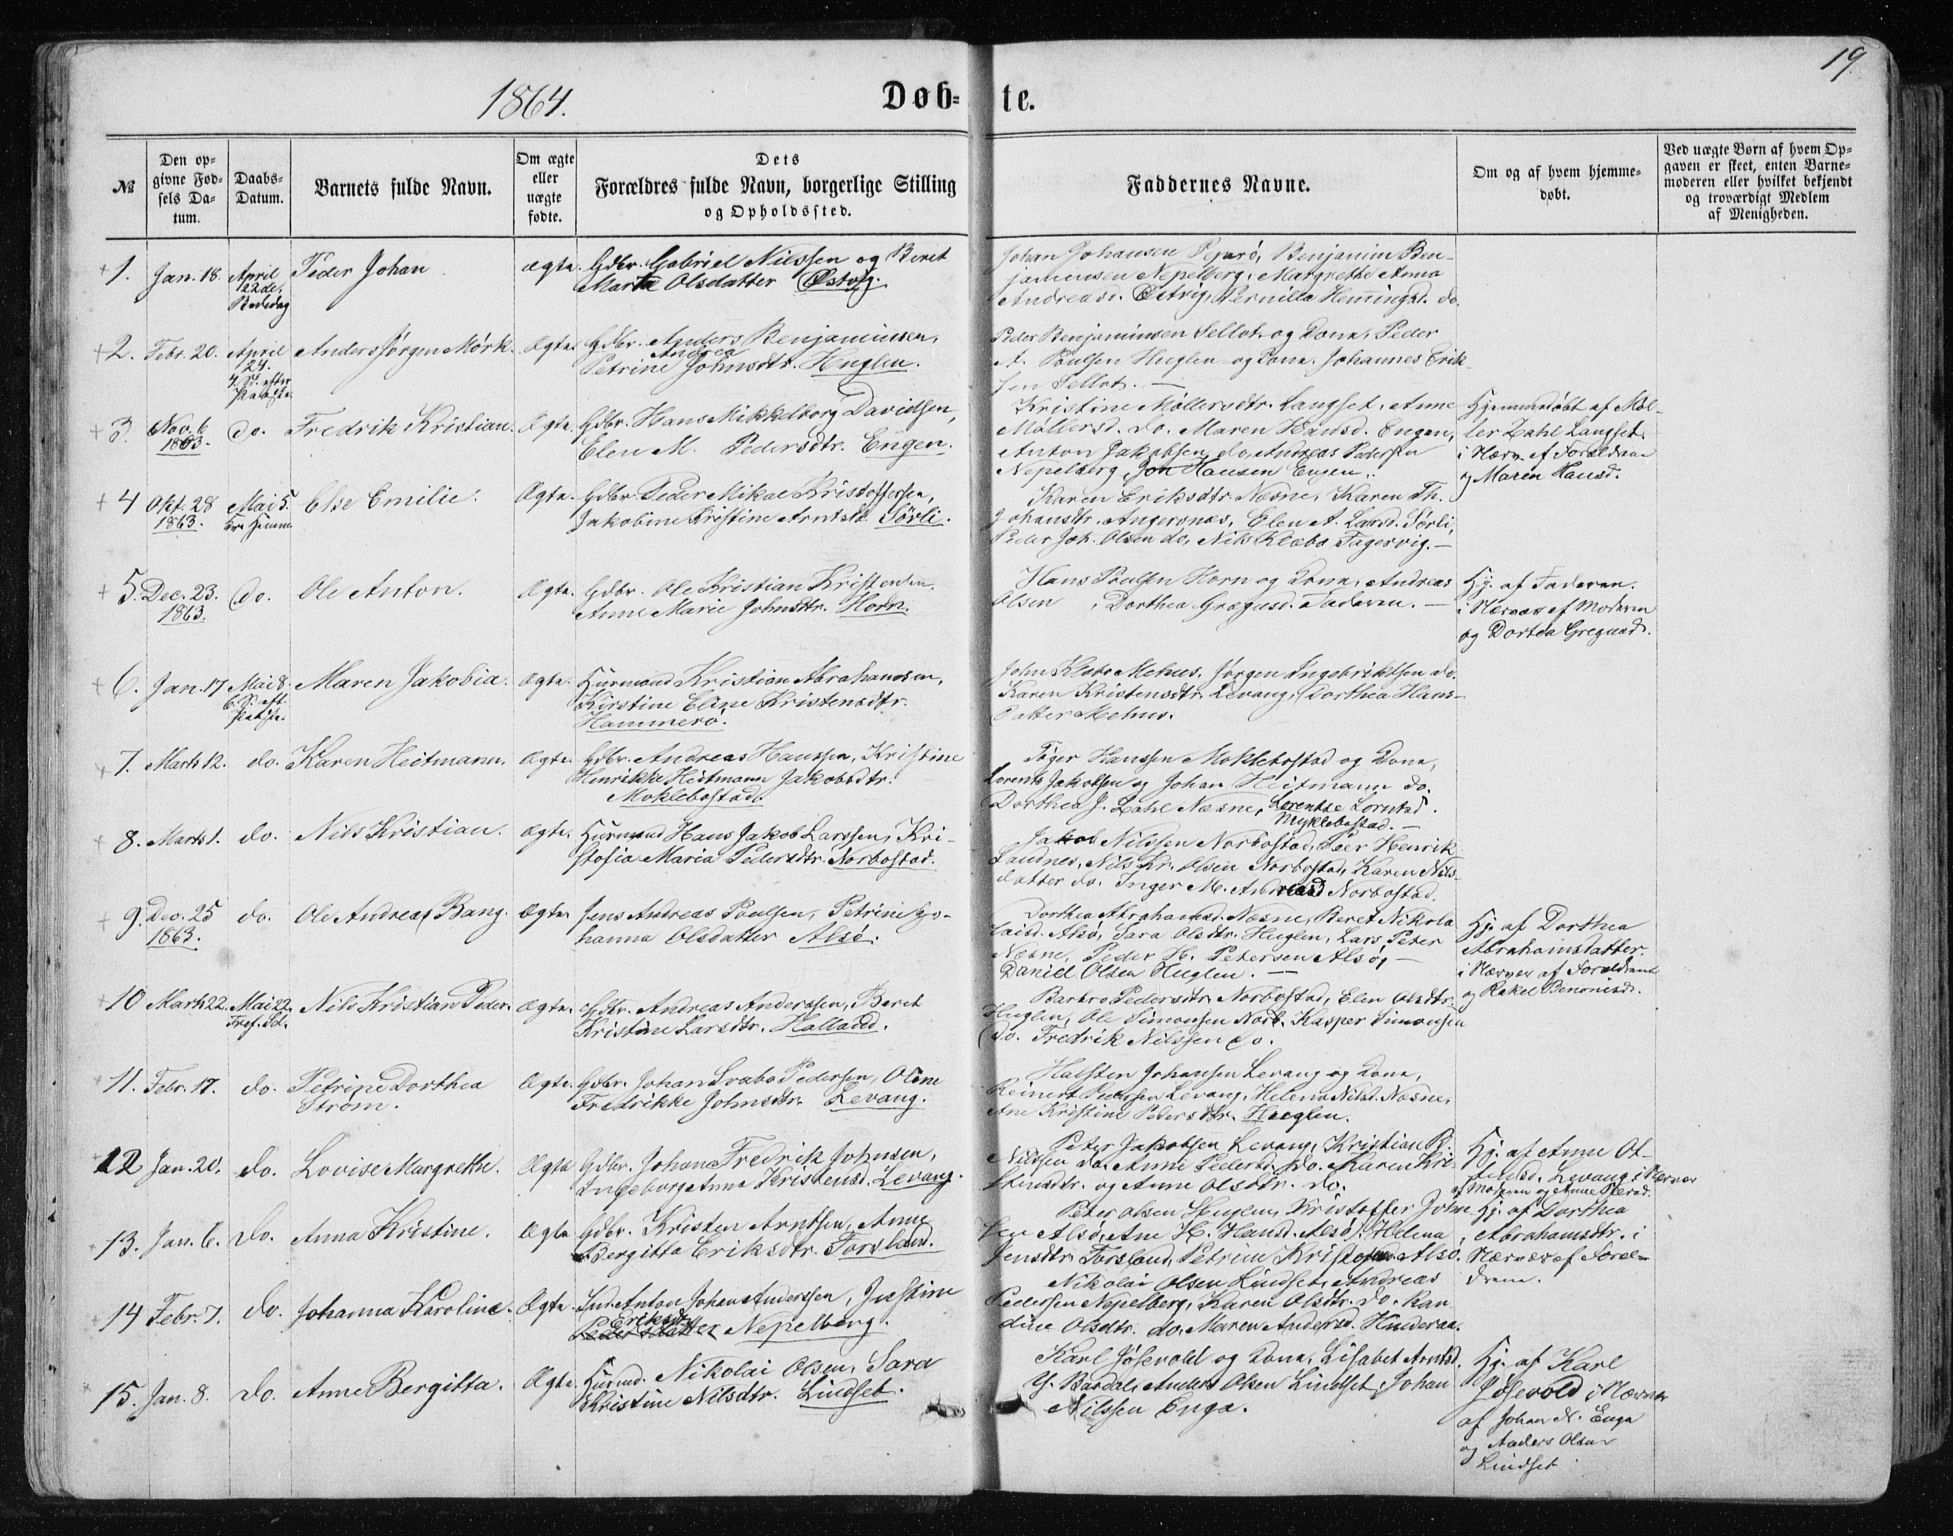 19.
1864.
Døb-te.
№
Den op-
givne Fød-
sels Da-
tum.
Daabs-
Datum.
Barnets fulde Navn.
Om ægte
eller
uægte
fødte.
Dets
Forældres fulde Navn, borgerlige Stilling
og Opholdssted.
Faddernes Navne.
Om og af hvem hjemme-
døbt.
Ved uægte Børn af hvem Op-
gaven er skeet, enten Barne-
moderen eller hvilket bekjendt
og troværdigt Medlem
af Menigheden.
1. Jan. 18. April
22de,
Bededag
Peder Johan
ægte. Gdbr. Gabriel Nilssen og Beret
Marta Olsdatter Østvig.
Johan Johansen Benjamin Ben-
jaminsen Nepelberg, Margrethe Anna
Andreasd. Østvig, Pernilla Hemingsd. do.
2. Febr. 20. April
24.
4. S. efter
Paaske.
Anders Jørgen Mørk.
Ægte. Gdbr. Anders Benjaminsen,
Andrea
Petrine Johnsdtr. Huglen.
Peder Benjaminsen Sellot. og Kona, Peder
A. Poulsen Huglen og Kona, Johannes Erik-
sen Sellot. —
3. Nov. 6
1863.
do. Fredrik Kristian.
Ægte. Gdbr. Hans Mikkelborg Davidsen,
Elen M. Pedersdtr. Engen.
Kristine Møllersdtr. Langset, Anne
Møllersd. do. Maren Hansd. Engen,
Anton Jakobsen do, Andreas Pedersen
Nepelberg, Jon Hansen Engen.
Hjemmedøbt af Møl-
ler Zahl Langset.
i Nærv. af Forældrene
og Maren Hansd.
4 Okt. 28
1863.
Mai 5.
Kr. Himm
Else Emilie.
Ægte. Gdbr. Peder Mikal Kristoffersen,
Jakobine Kristine Arntsd. Sørli.
Karen Eriksdtr. Næsne, Karen Th.
Johansdtr. Angersnæs, Elen A. Larsd. Sørli,
Peder Joh. Olsen do, Nils Klæbo Fagervig. —
5. Dec. 23.
1863.
do. Ole Anton.
Ægte. Gdbr. Ole Kristian Kristensen.
Anne Marie Johnsdtr. Horn.
Hans Poulsen Horn og Kona, Andreas
Olsen , Dorthea Gregusd. Faderen. —
Hj. af Faderen.
i Nærvær af Moderen
og Dortea Gregusd.
6. Jan. 17 Mai 8.
6. S. eft.
Paaske.
Maren Jakobia.
Ægte. Husmand Kristian Abrahamsen,
Kirstine Eline Kristensdtr.
Hammerø.
John Klæbo Mehus, Jørgen Ingebriktsen do.
Karen Kristensdtr. Levang, Dorthea Hans-
datter Mehus.
7. Marts 12. do. Karen Heitmann.
Ægte. Gdbr. Andreas Hanssen, Kristine
Henrikke Heitmann Jakobsdtr.
Moklebostad.
Tøger Hanssen Moklebostad og Kona,
Lorents Jakobsen og Johan Heitmann do.
Dorthea J. Zahl Næsne, Lorentse Lorntsd.
Myklebostad. —
8. Marts 1. do. Nils Kristian.
Ægte. Husmand Hans Jakob Larssen, Kri-
stofia Maria Pedersdtr. Norbostad.
Jakob Nilssen Norbostad, Peer Henrik
Sandnes, Nils Kr. Olsen Norbostad, Karen Nils-
datter do. Inger M. Andreasd Norbostad.
9. Dec. 25
1863.
do. Ole Andreas Bang.
Ægte. Jens Andreas Poulsen, Petrine Jo-
hanna Olsdatter Alsø.
Dorthea Abrahamsd. Næsne, Beret Nikola-
isd. Alsø, Sara Olsdtr. Huglen, Lars Peter
Næsne, Peder H. Petersen Alsø, —
Daniel Olsen Huglen. —
Hj. af Dorthea
Abrahamsdatter.
i Nærvær af Forældrene
og Rakel Benonisd.
10 Marts 22. Mai 22
Tref. Sd.
Nils Kristian Peder.
Ægte. Gdbr. Andreas Anderssen, Beret
Kristine Larsdtr. Halland.
Barbro Pedersdtr. Norbostad, Elen Olsdtr.
Huglen, Ole Simonsen Norb. Kasper Simonsen
do. Fredrik Nilssen do.
11. Febr. 17. do. Petrine Dorthea
Strøm.
Ægte. Gdbr. Johan Svabo Pedersen, Oline
Fredrikke Johnsdtr. Levang.
Halsten Johansen Levang og Kona,
Reinert Pedersen Levang, Helena Nilsd. Næsne,
Ane Kristine Pedersdtr. Huglen.
12 Jan. 20. do. Lovise Margrethe.
Ægte Gdbr. Johan Fredrik Johnsen,
Ingeborg Anna Kristensd. Levang.
Peter Jakobsen Levang, Kristian B.
Nilssen do. Anne Pedersd. do. Karen Kri-
stensdtr. og Anne Olsdtr. do.
Hj. af Anne Ol-
Levang i Nærvær
af Moderen og Anne Pedersd.
13. Jan. 6. do. Anna Kristine.
Ægte Gdbr. Kristen Arntsen, Anne
Bergitta Eriksdtr. Forsland.
Peter Olsen Huglen, Kristoffer John-
sen Alsø, Ane H. Hansd. Alsø, Helena
Jensdtr. Forsland, Petrine Alsø.
Hj. af Dorthea
Abrahamsdtr. i
Nærvær af Foræl-
drene.
14 Febr. 7. do. Johanna Karoline.
Ægte. Ind. Anton Johan Anderssen, Justine
Eriksdtr.
Pedersdatter Nepelberg.
Nikolai Olsen Lindset, Andreas
Pedersen Nepelberg, Karen Olsdtr. do. Ran-
dine Olsdtr. do, Maren Andersd. Hunderaa.
15. Jan. 8. do. Anne Bergitta.
Ægte. Husmd. Nikolai Olsen, Sara
Kristine Nilsdtr. Lindset.
Karl Jøsevold og Kona, Lisabet Arntsd.
Y. Bardal, Anders Olsen Lindset, Johan
Nilssen Enga.
Hj. af Karl
Jøsevold i Nærvær
af Johan N. Enga
og Anders Olsen
Lindset